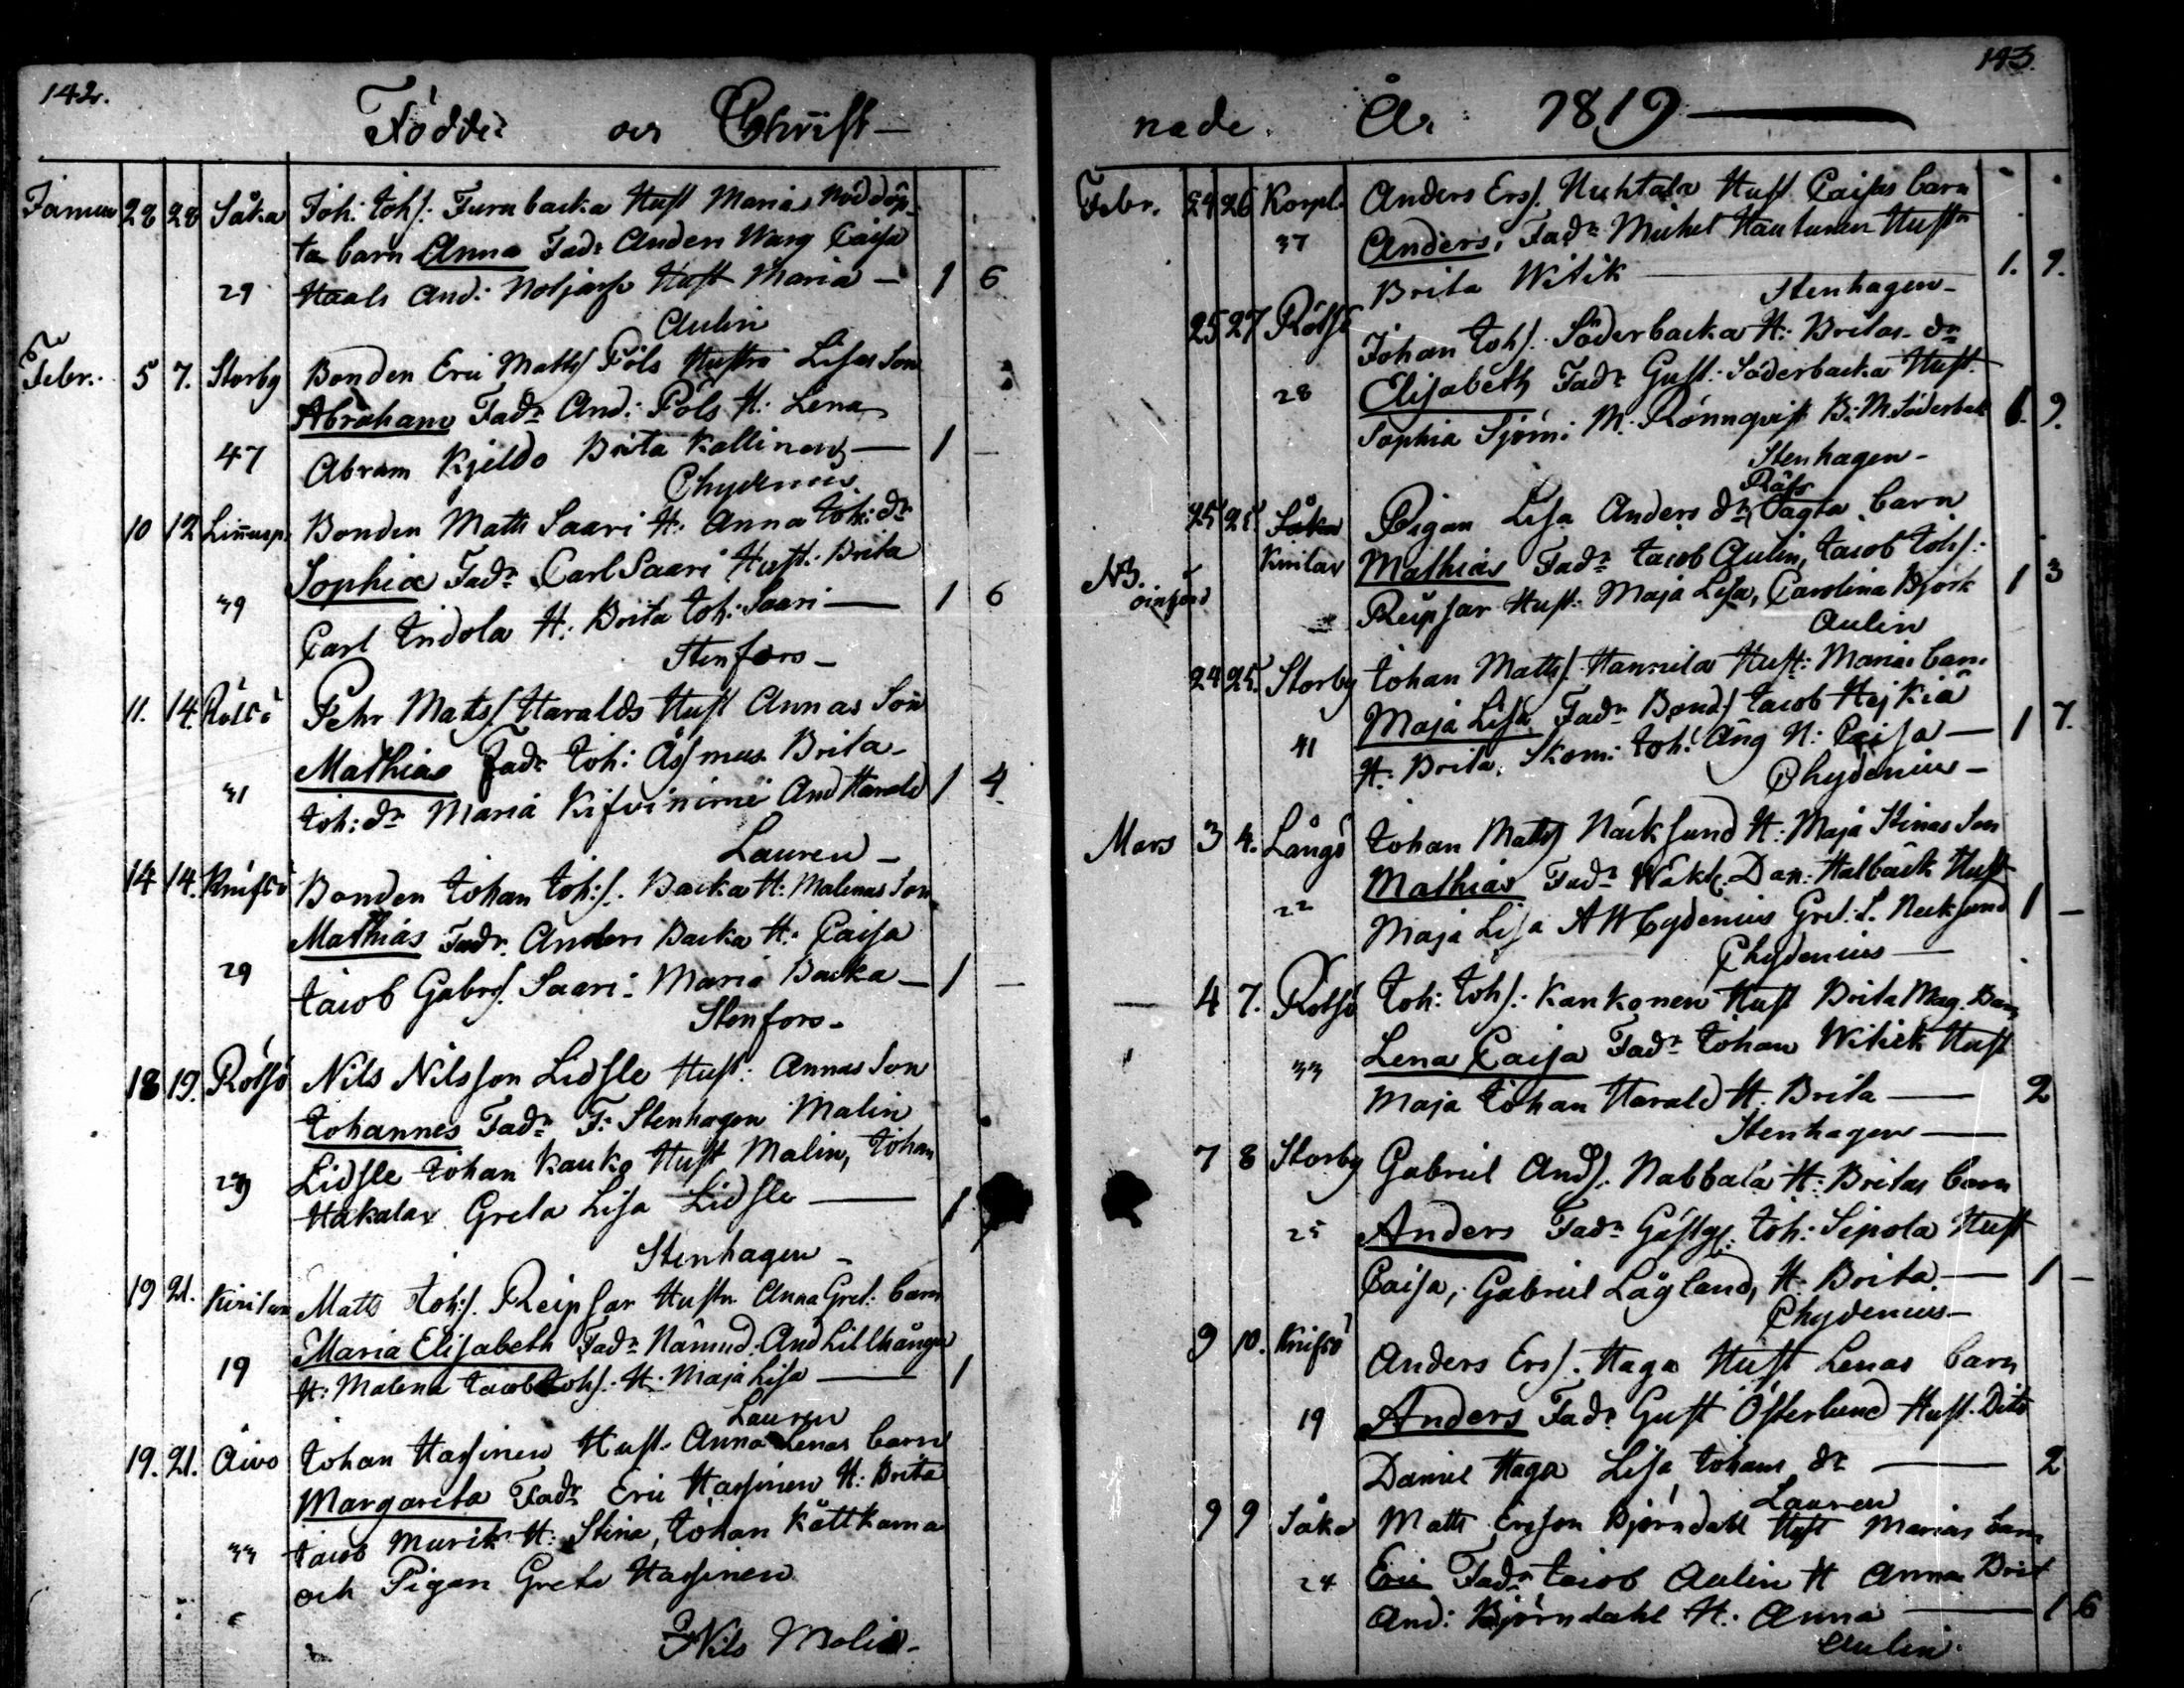 142.
Födde och Christ-
Januar 28 28 Såka Joh: Joh/: Furubacka Hust Marias Nöddöp-
ta barn Anna Fadr Anders Warg Caisa
29 Haals And: Hustr Maria — 1 6
Aulin
Febr. 5 7. Storby Bonden Eric Matts/ Pöls Hustru Lisas Son
Abraham Fadr And: Pöls H: Lena
47 Abram Kjeldo Brita Kallinen — 1 —
Chydenius
10 12 Linnusp. Bonden Matts Saari H: Anna Joh: dr
Sophia Fadr Carl Saari Hust: Brita
39 Carl Indola H: Brita Joh: Saari — 1 6
Stenfors —
11. 14. Rötsö Pehr Matts/ Haralds Hust Annas Son
Mathias Fadr Joh: Åsmus Brita
31 Joh: dr Maria Kifviniemi And Harald 1 4.
Lauren —
14 14. Knifsö Bonden Johan Joh:/. Backa H: Malenas Son
Mathias Fadr. Anders Backa H: Caisa
29 Jacob Gabr/. Saari. Maria Backa — 1 —
Stenfors —
18 19. Rötsö Nils Nilsson Lidsle Hust: Annas Son
Johannes Fadr F: Stenhagen Malin
Lidsle Johan Kauko Hust Malin, Johan
29 Hakala Greta Lisa Lidsle — 1
Stenhagen —
19 21. Kirilax Matts Joh:/. Reipsar Hustr Anna Gret: barn
Maria Elisabeth Fadr Nämnd. And Lillhånga
19 H: Malena Jacob Joh/. H: Maja Lisa — 1
Lauren
19. 21. Åivo Johan Hassinen Hust. Anna Lenas barn
Margareta Fadr Eric Hassinen H: Brita
33 Jacob Murik H: Stina, Johan Kattkama
och Pigan Greta Hassinen
Nils Molin
143.
nade. År. 1819 —
Febr. 24 26 Korpl. Anders Ers/. Huhtala Hust Caisas barn
37 Anders, Fadr Michel Hautunen Hustr
Brita Witik — 1. 9.
Stenhagen —
25 27 Rötsö Johan Joh/. Söderbacka H: Britas dr
28 Elisabeth Fadr Gust: Söderbacka Hust
Sophia Sjöm: M. Rönnqvist B: M. Söderback 1. 9.
Stenhagen —
25 25. Såka Pigan Lisa Anders dr Räfs barn
Kirilax Mathias Fadr Jacob Aulin, Jacob Joh/:
NB. Reipsar Hust: Maja Lisa, Carolina Björk 1 3
Aulin
24 25. Storby Johan Matts/ Hannila Hust: Marias barn
Maja Lisa Fadr Bond/ Jacob Hejkiä
41 H: Brita, Skom: Joh: Äng H: Caisa — 1 7.
Chydenius —
Mars 3 4. Långö Johan Matts/ Näcksund H: Maja Stinas Son
22 Mathias Fadr Wäkt: Dan: Halbäck Hust
Maja Lisa A H Cydenius Gret: L. Necksund 1 —
Chydenius —
— 4 7. Rötsö Joh: Joh/: Kankonen Hust Brita Mag. Barn
33 Lena Caisa Fadr Johan Witick Hust
Maja Johan Harald H. Brita — 2
Stenhagen —
7 8 Storby Gabriel And/. Nabbala H: Britas barn
25 Anders Fadr Gästg: Joh: Sipola Hust
Caisa, Gabriel Lågland, H: Brita — 1 —
Chydenius —
9 10. Knifsö Anders Ers/. Haga Hust Lenas barn
19 Anders Fadr Gust Österlund Hust. Dito
Daniel Haga Lisa Johans dr — 2
Lauren
9 9 Såka Matts Ersson Björndahl Hust Marias barn
24 Eric Fadr Jacob Aulin H Anna Brit
And: Björndahl H: Anna — 1 6
Aulin